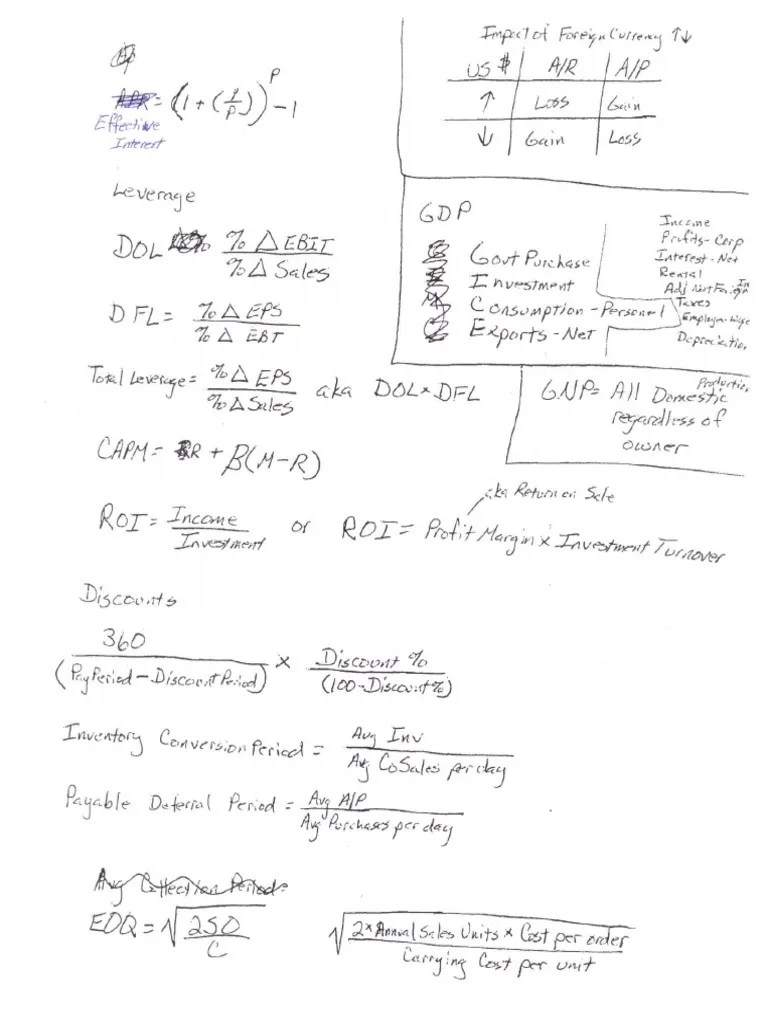 Effective = (1 + (i/p))^p - 1
Interest
Impact of Foreign Currency ↑↓
US $ A/R A/P
↑ Loss Gain
↓ Gain Loss
Leverage
DOL %Δ EBIT / %Δ Sales
DFL = %Δ EPS / %Δ EBT
Total Leverage = %Δ EPS / %Δ Sales aka DOL × DFL
CAPM = R + β(M-R)
GDP
Govt Purchase
Investment
Consumption - Personal
Exports - Net
Income
Profits - Corp
Interest - Net
Rental
Adj Net Foreign In
Taxes
Employee - Wage
Depreciation
GNP = All Domestic Production
regardless of
owner
ROI = Income / Investment or ROI = Profit Margin × Investment Turnover
aka Return on Sale
Discounts
360 / (Pay Period - Discount Period) × Discount % / (100 - Discount %)
Inventory Conversion Period = Avg Inv / Avg CoSales per day
Payable Deferral Period = Avg A/P / Avg Purchases per day
Avg Collection Period:
EOQ = √2SO / C
√2 × Annual Sales Units × Cost per order / Carrying Cost per unit